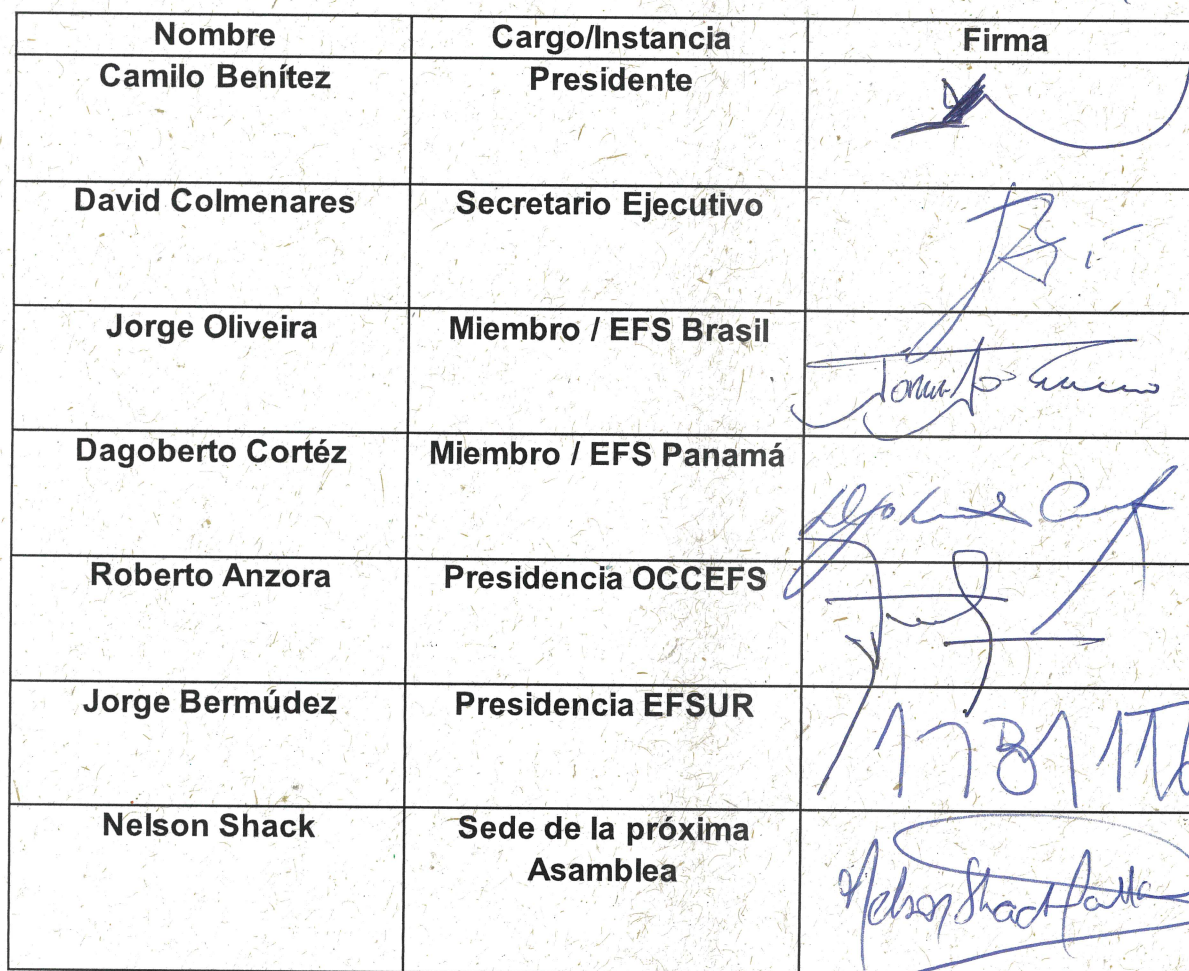 Nombre Cargo/Instancia Firma
Camilo Benítez Presidente
David Colmenares Secretario Ejecutivo
Jorge Oliveira Miembro / EFS Brasil
Dagoberto Cortéz Miembro / EFS Panamá
Roberto Anzora Presidencia OCCEFS
Jorge Bermúdez Presidencia EFSUR
Nelson Shack Sede de la próxima
Asamblea
Nelson Shack